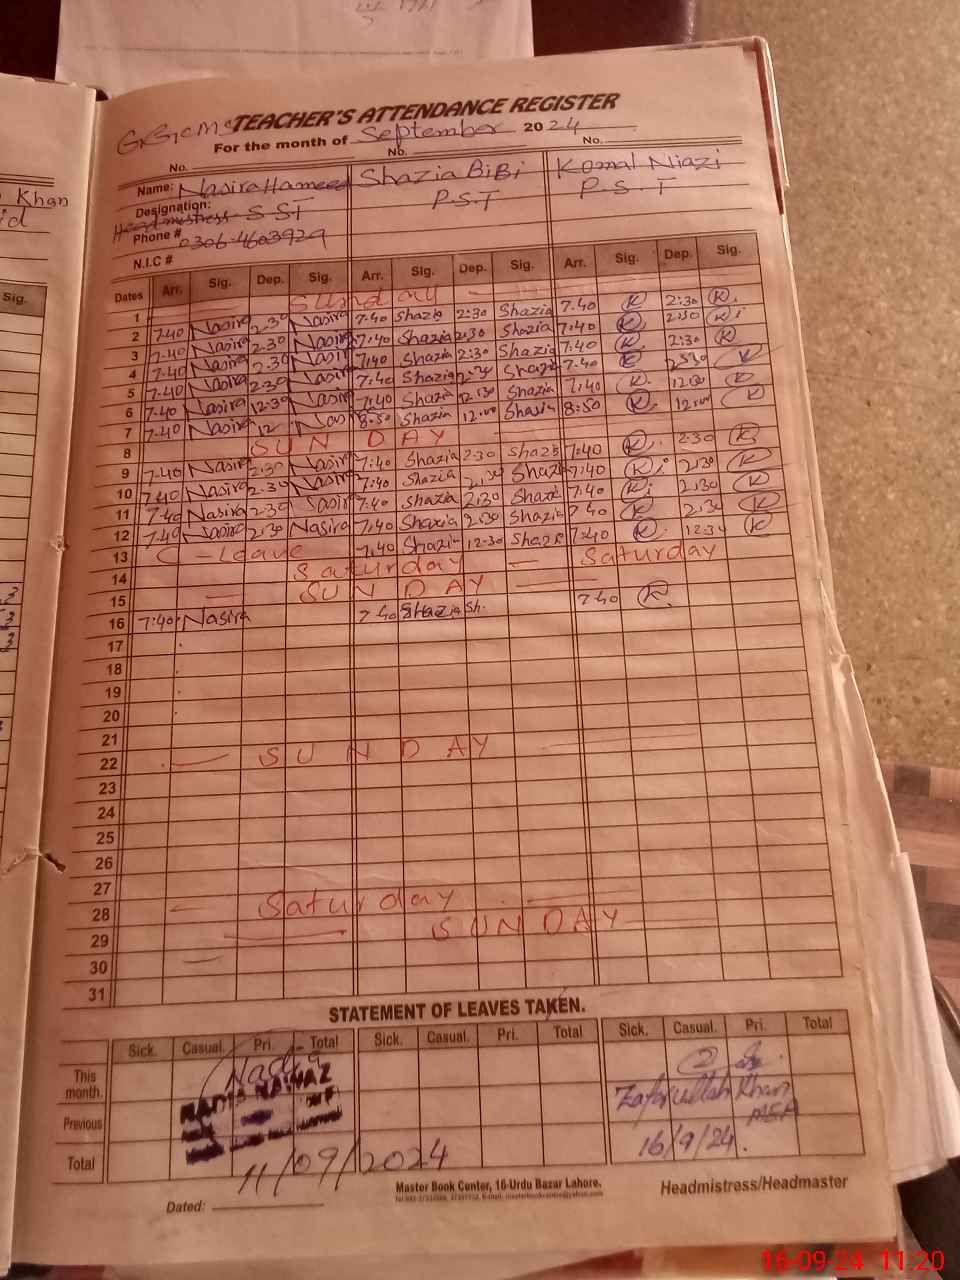 TEACHER'S ATTENDANCE REGISTER
For the month of September 2024
No. No. No.
Name: Nasira Hameed Shazia BiBi Komal Niazi
Designation: P.S.T P.S.T
Headmistress S ST
Phone # 0306-4603929
N.I.C #
Khan
Sig.
Dates Arr. Sig. Dep. Sig. Arr. Sig. Dep. Sig. Arr. Sig. Dep. Sig.
1 Sunday
2 7-40 Nasira 2.30 Nasira 7:40 Shazia 2:30 Shazia 7.40 K 2:30 K
3 7-40 Nasira 2.30 Nasira 7:40 Shazia 2:30 Shazia 7:40 K 2:30 K
4 7-40 Nasira 2.30 Nasira 7:40 Shazia 2:30 Shazia 7.40 K 2:30 K
5 7-40 Nasira 2.30 Nasira 7:40 Shazia 2:30 Shazia 7.40 K 2:30 K
6 7-40 Nasira 12.30 Nasira 7:40 Shazia 12:30 Shazia 7:40 K 12:30 K
7 7-40 Nasira 12 Nas 8:50 Shazia 12:00 Shazia 8:50 K 12:00 K
8 SUN DAY
9 7-40 Nasira 2.30 Nasira 7:40 Shazia 2:30 Shazia 7:40 K 2:30 K
10 7-40 Nasira 2.30 Nasira 7:40 Shazia 2:30 Shazia 7:40 K 2:30 K
11 7-40 Nasira 2.30 Nasira 7:40 Shazia 2:30 Shazia 7:40 K 2:30 K
12 7-40 Nasira 2.30 Nasira 7:40 Shazia 2:30 Shazia 7:40 K 2:30 K
13 C - Leave 7:40 Shazia 12:30 Shazia 7:40 K 12:30 K
14 Saturday Saturday
15 SUN DAY
16 7:40 Nasira 7:40 Shazia Sh. 7:40 K
17
18
19
20
21
22 SUN DAY
23
24
25
26
27
28 Saturday
29 SUN DAY
30
31
STATEMENT OF LEAVES TAKEN.
Sick. Casual. Pri. Total Sick. Casual. Pri. Total Sick. Casual. Pri. Total
This month.
Nadia
NADIA NAWAZ
Previous
Zafarullah Khan
MEA
Total
11/09/2024
16/9/24.
Dated:
Master Book Center, 16-Urdu Bazar Lahore.
Headmistress/Headmaster
16-09-24 11:20